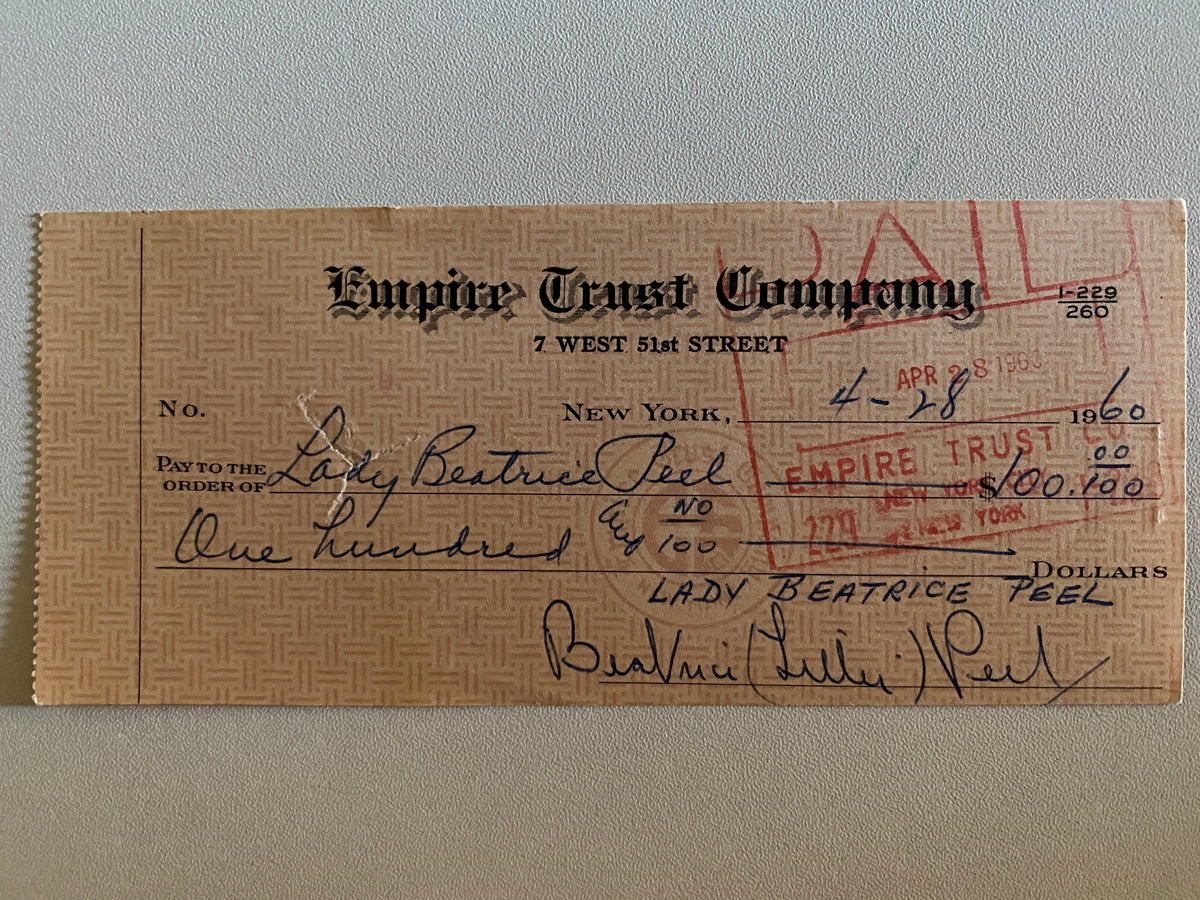 PAID
Empire Trust Company
1-229
260
7 WEST 51st STREET
APR 28 1960
No.
NEW YORK, 4-28 1960
EMPIRE TRUST CO.
PAY TO THE ORDER OF Lady Beatrice Peel $100.00/100
NEW YORK
229 NEW YORK
One hundred and NO/100 DOLLARS
LADY BEATRICE PEEL
Beatrice (Lillie) Peel